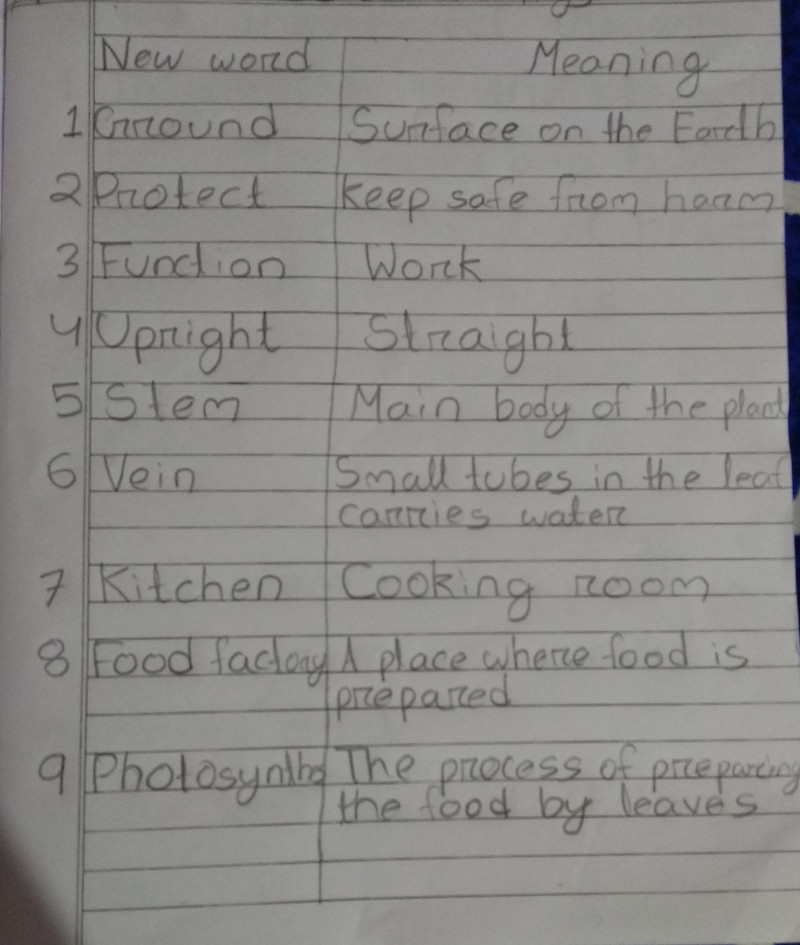 New word Meaning
1 Ground Surface on the Earth
2 Protect Keep safe from harm
3 Function Work
4 Upright Straight
5 Stem Main body of the plant
6 Vein Small tubes in the leaf
carries water
7 Kitchen Cooking room
8 Food factory A place where food is
prepared
9 The process of preparing
the food by leaves